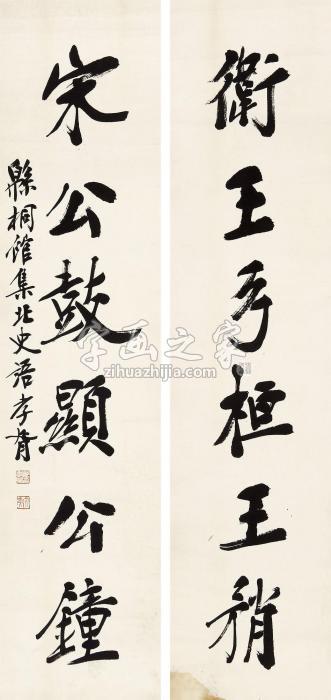 衛王弓桓王矟
宋公鼓顯公鐘
緜桐館集北史語孝胥
字画之家
zihuazhijia.com